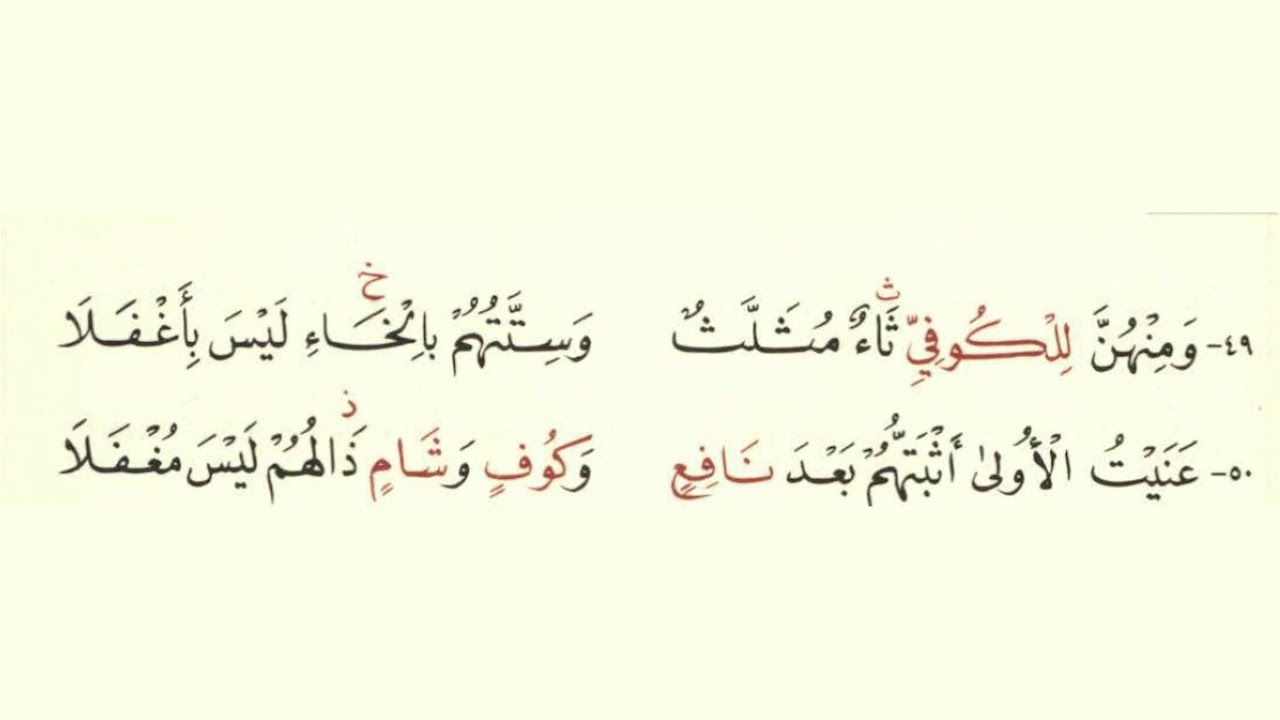 ٤٩- وَمِنْهُنَّ لِلْكُوفِيِّ ثَاءٌ مُثَلَّثٌ وَسِتَّتُهُمْ بِالْخَاءِ لَيْسَ بِأَغْفَلَا
٥٠- عَنَيْتُ الْأُولَى أَثْبَتُّهُمْ بَعْدَ نَافِعٍ وَكُوفٍ وَشَامٍ ذَالُهُمْ لَيْسَ مُغْفَلَا